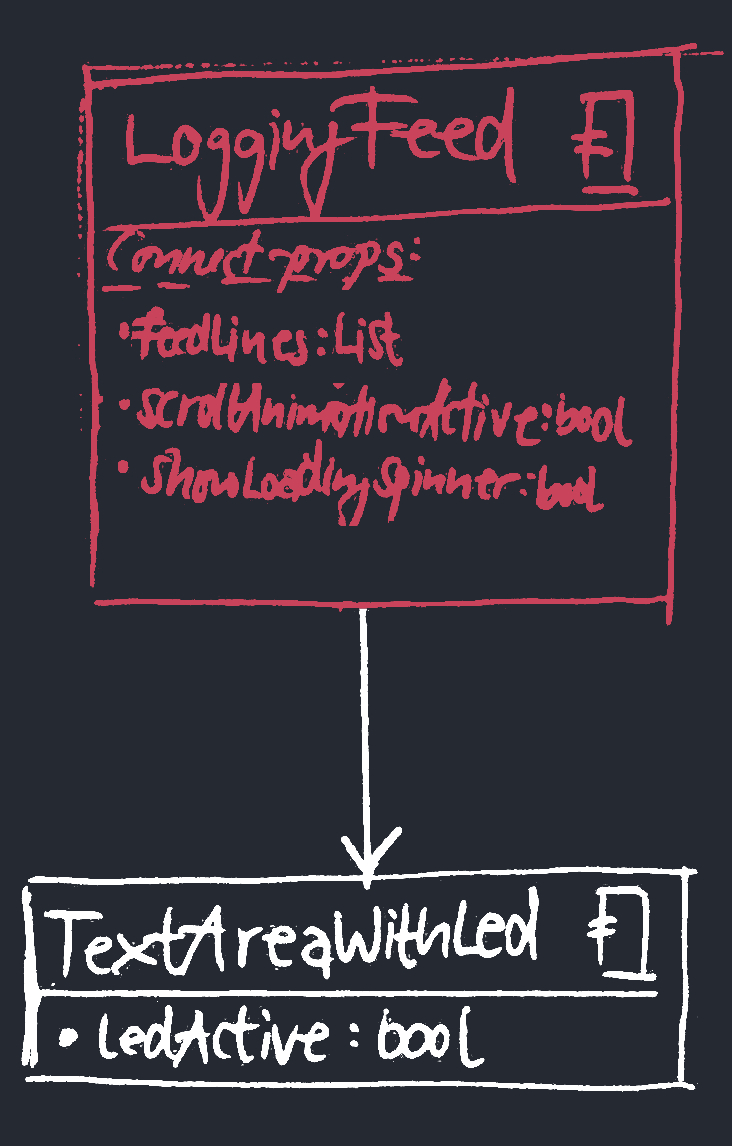 LoggingFeed
Connect-props:
• feedLines: List
• scrollAnimationActive: bool
• showLoadingSpinner: bool
TextAreaWithLed
• ledActive: bool